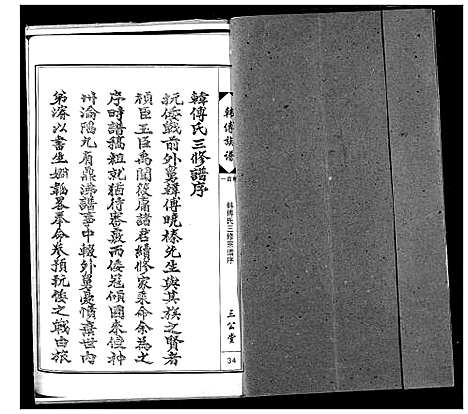 韓傅氏三修譜序
抗倭戰前外舅韓傅曉榛先生與其族之賢者
禎臣玉臣禹聞後甫諸君續修家乘命余為之
序時譜稿粗就猶待審覈而倭冠傾國來侵神
州淪陷九有鼎沸譜事中輟外舅憂憤棄世內
弟濬以書生嫻韜畧奉命參預抗倭之戰由旅
韓傅族譜
韓傅氏三修宗譜序
三公堂
34